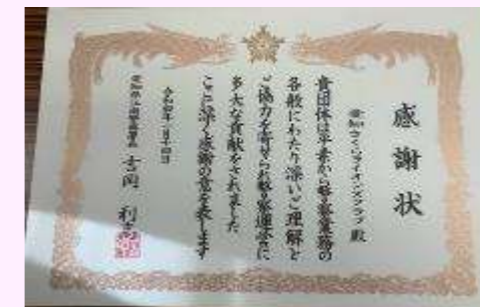 感謝状
愛知さくらライオンズクラブ 殿
貴団体は平素から警察業務の
各般にわたり深いご理解と
ご協力を寄せられ警察運営に
多大な貢献をされました
ここに深く感謝の意を表します
令和四年一月十四日
愛知県江南警察署長 吉岡 利高